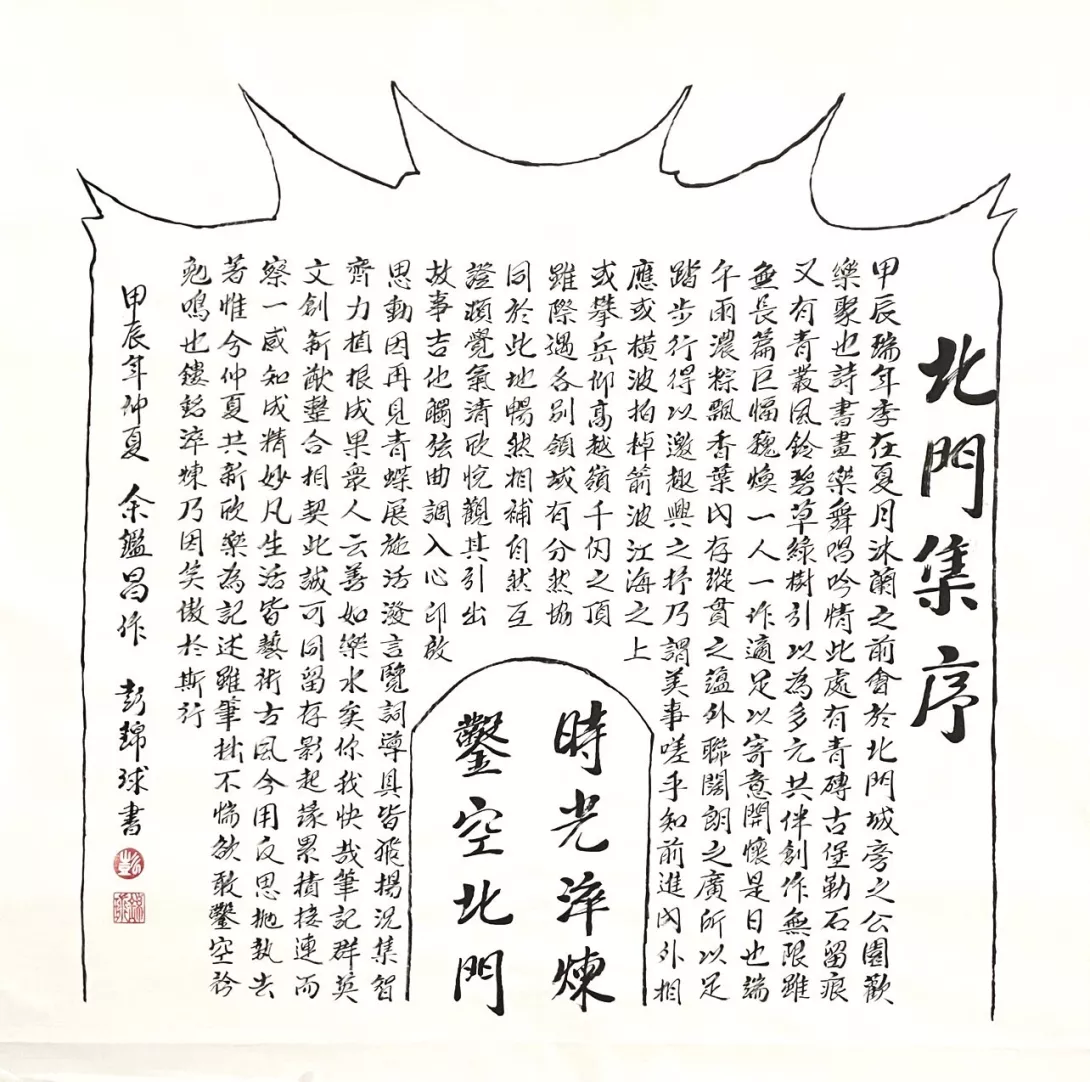 北門集序
甲辰瑞年季在夏月沐蘭之前會於北門城旁之公園歡
樂聚也詩書畫樂舞唱吟情此處有青磚古堡勒石留痕
又有青叢風鈴碧草綠樹引以為多元共伴創作無限雖
無長篇巨幅魏煥一人一作適足以寄意開懷是日也端
午雨濃粽飄香葉內存蹤貫之蘊外聯闊朗之廣所以足
踏步行得以邀趣興之抒乃謂美事嗟乎知前進內外相
應或橫波拍棹箭波江海之上
或攀岳仰高越嶺千仞之頂
雖際遇各別領域有分然協
同於此地暢然相補自然互
證頓覺氣清欣悅觀其引出
故事吉他觸弦曲調入心即啟
思動因再見青蝶展施活潑言覽詞導具皆飛揚況集智
齊力植根成果眾人云善如樂水矣你我快哉筆記群英
文創新猷整合相契此誠可同留存影起緣累積接連而
察一感知成精妙凡生活皆藝術古風今用反思拋執去
著惟今仲夏共新欣樂為記述雖筆拙不惴欲敢鑿空矜
勉鳴也鏤銘淬煉乃因笑傲於斯行
甲辰年仲夏 余鑑昌作 彭錦球書
時光淬煉
鑿空北門